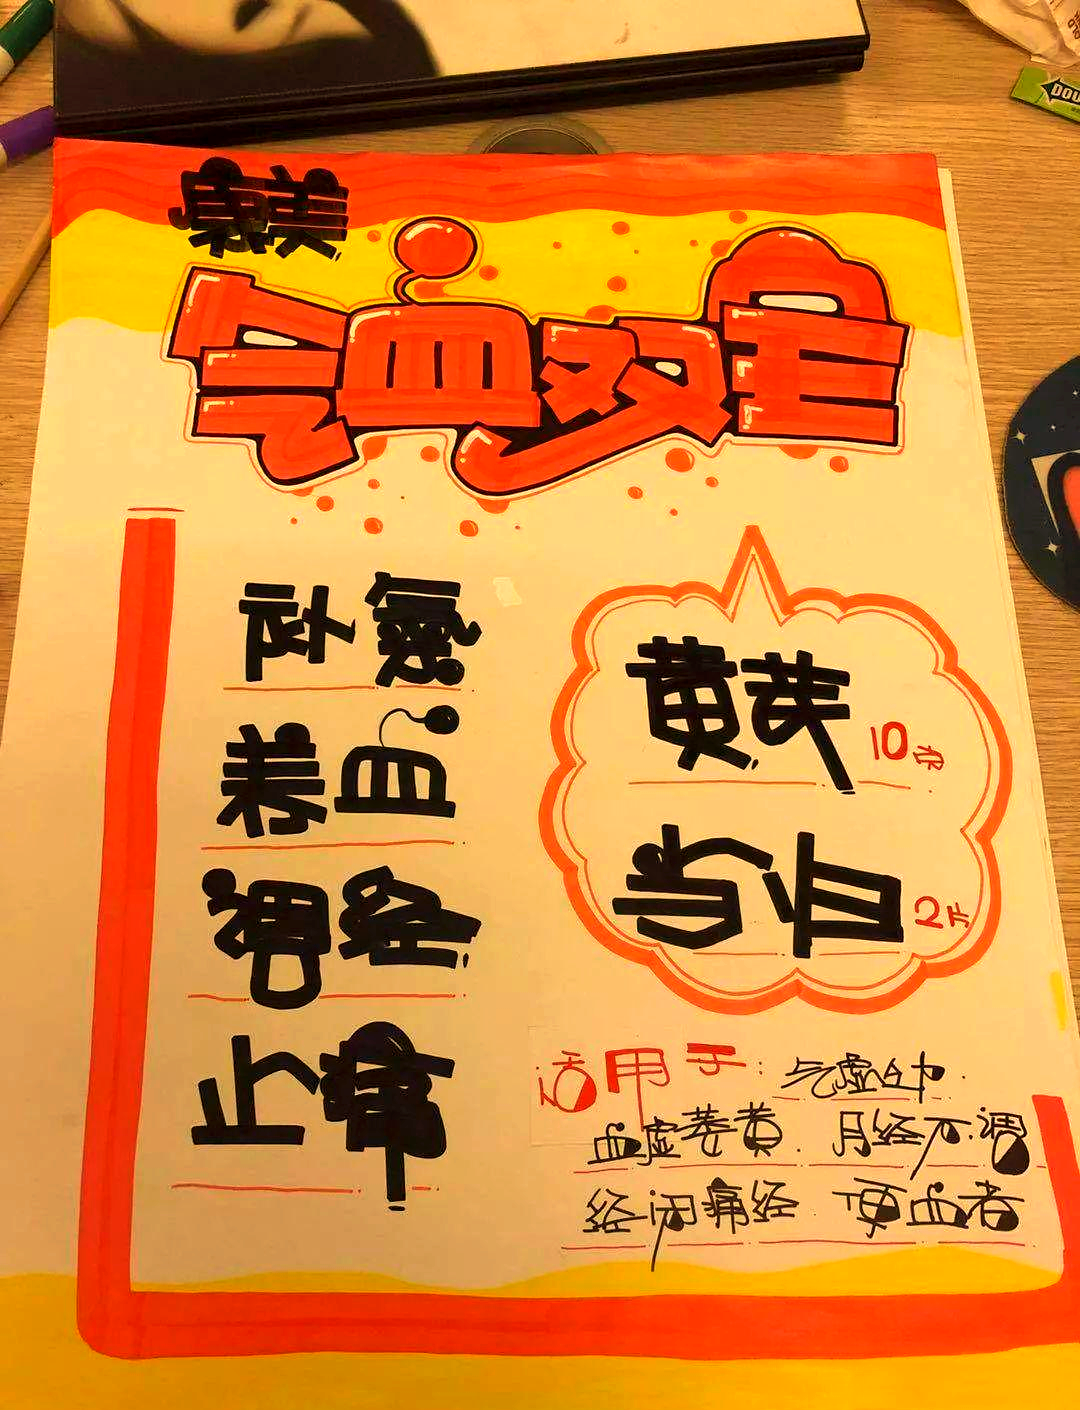 康美
气血双宝
补氣
养血
调经
止痛
黄芪 10克
当归 2片
适用于：气虚乏力
血虚萎黄 月经不调
经闭痛经 便血者
DOU